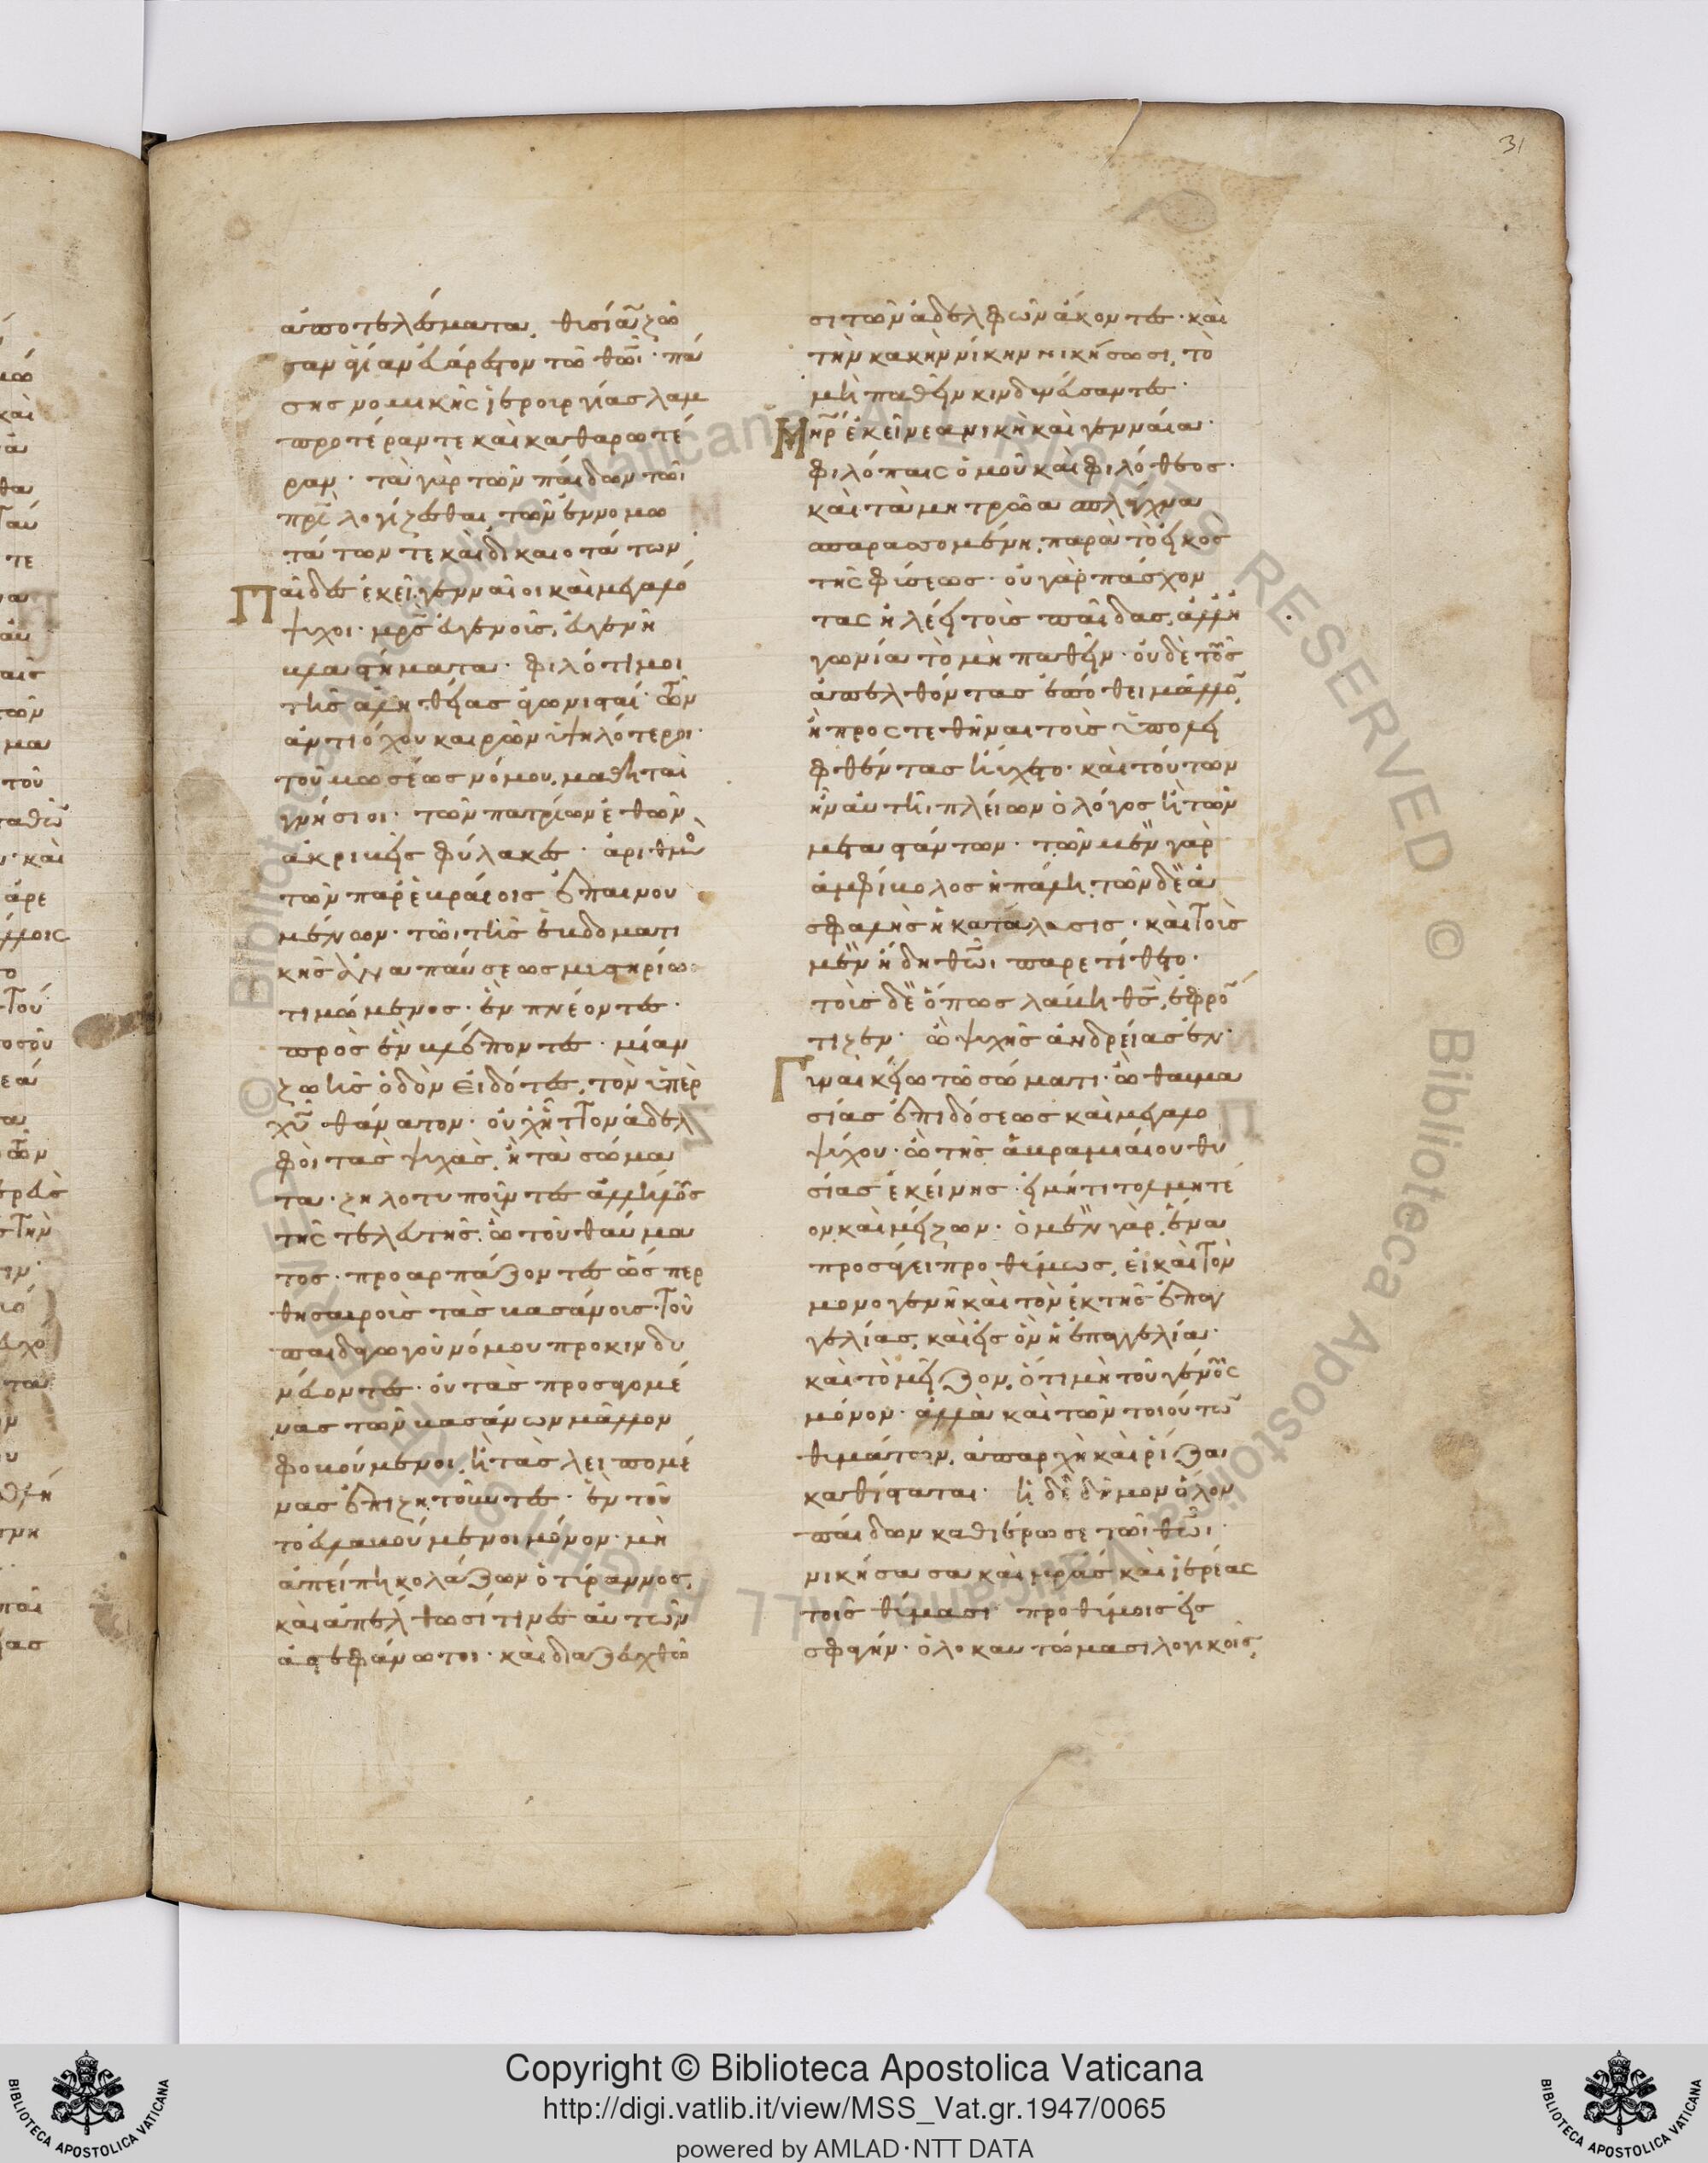 31
ἀποτελέσματα, θυσίαν ζῶ
σαν θύει ἀνδ εὐάρεστον τῶ θω̅ι· πά
σης νομικῆς ἱερουργίας λαμ
προτέραν τε καὶ καθαρωτέ
ραν· τὰ γὰρ τῶν παίδων τῶι
πρι̅ λογίζεσθαι, τῶν ἐννομω
τάτων τε καὶ δικαιοτάτων·
Παῖδες ἐκεῖ γενναῖοι καὶ μεγαλό
ψυχοι· μρ̅ς εὐγενοῦς, εὐγενῆ
βλαστήματα· φιλότιμοι
τῆς ἀληθείας ἀγωνισταί· τῶν
ἀντιόχου καιρῶν ὑψηλότεροι·
τοῦ μωσέως νόμου, μαθηταὶ
γνήσιοι· τῶν πατρίων ἐθῶν
ἀκριβεῖς φύλακες· ἀριθμὸς
τῶν παρ' ἑβραίοις ἐπαινου
μένων· τῶι τῆς ἑβδοματι
κῆς ἀναπαύσεως μυστηρίω
τιμώμενος· ἓν πνέοντες·
πρὸς ἓν βλέποντες· μίαν
ζωῆς ὁδὸν εἰδότες, τὸν ὑπὲρ
χυ̅ θάνατον· οὐχ ἧττον ἀδελ
φοὶ τὰς ψυχὰς, ἢ τὰ σώμα
τα· ζηλοτυποῦντες ἀλλήλους
τῆς τελευτῆς· ὢ τοῦ θαύμα
τος· προαρπάζοντες ὥσπερ
θησαυροὺς τὰς βασάνους· τοῦ
παιδαγωγοῦ νόμου προκινδυ
νεύοντες· οὐ τὰς προσαγομέ
νας τῶν βασάνων μᾶλλον
φοβούμενοι, ἢ τὰς λειπομέ
νας ἐπιζητοῦντες· ἓν τοῦ
το εὐλαβούμενοι μόνον· μὴ
ἀπείπη κολάζων ὁ τύραννος,
καὶ ἀπέλθωσί τινες αὐτῶν
ἀστεφάνωτοι· καὶ διαζευχθῶ
σι τῶν ἀδελφῶν ἄκοντες· καὶ
τὴν κακὴν νίκην νικήσωσι, τὸ
μὴ παθεῖν κινδυνεύσαντες·
Μηρ̅ ἐκεῖ νεανικὴ καὶ γενναία·
φιλόπαις ὁμοῦ καὶ φιλόθεος·
καὶ τὰ μητρῶα σπλάγχνα
σπαρασσομένη, παρὰ τὸ εἰκὸς
τῆς φύσεως· οὐ γὰρ πάσχον
τας ἠλέει τοὺς παῖδας, ἀλλ' ἠ
γωνία τὸ μὴ παθεῖν· οὐδὲ τοὺς
ἀπελθόντας ἐπόθει μᾶλλον,
ἢ προςτεθῆναι τοὺς ὑπολει
φθέντας ηὔχετο· καὶ τούτων
ἦν αὐτῆι πλείων ὁ λόγος ἢ τῶν
μεταστάντων· τῶν μὲν γὰρ
ἀμφίβολος ἡ πάλη, τῶν δὲ ἀ
σφαλὴς ἡ κατάλυσις· καὶ τοὺς
μὲν ἤδη θω̅ι παρετίθετο·
τοὺς δὲ ὅπως λάβη θς̅, ἐφρό
τιζεν· ὢ ψυχῆς ἀνδρείας ἐν
Γυναικείω τῶ σώματι· ὢ θαυμα
σίας ἐπιδόσεως καὶ μεγαλο
ψύχου· ὢ τῆς ἀβραμιαίου θυ
σίας ἐκείνης· εἰ μή τι τολμητέ
ον καὶ μείζων· ὁ μὲν γὰρ, ἕνα
προσάγει προθύμως, εἰ καὶ τὸν
μονογενῆ καὶ τὸν ἐκ τῆς ἐπαγ
γελίας, καὶ εἰς ὃν ἡ ἐπαγγελία·
καὶ τὸ μεῖζον, ὅτι μὴ τοῦ γένους
μόνον· ἀλλὰ καὶ τῶν τοιούτων
θυμάτων, ἀπαρχὴ καὶ ῥίζα
καθίσταται· ἡ δὲ δῆμον ὅλον
παίδων καθιέρωσε τῶι θω̅ι·
νικήσασα καὶ μρ̅ας καὶ ἱερέας
τοῖς θύμασι προθύμοις εἰς
σφαγήν· ὁλοκαυτώμασι λογικοῖς,
Copyright © Biblioteca Apostolica Vaticana
http://digi.vatlib.it/view/MSS_Vat.gr.1947/0065
powered by AMLAD·NTT DATA